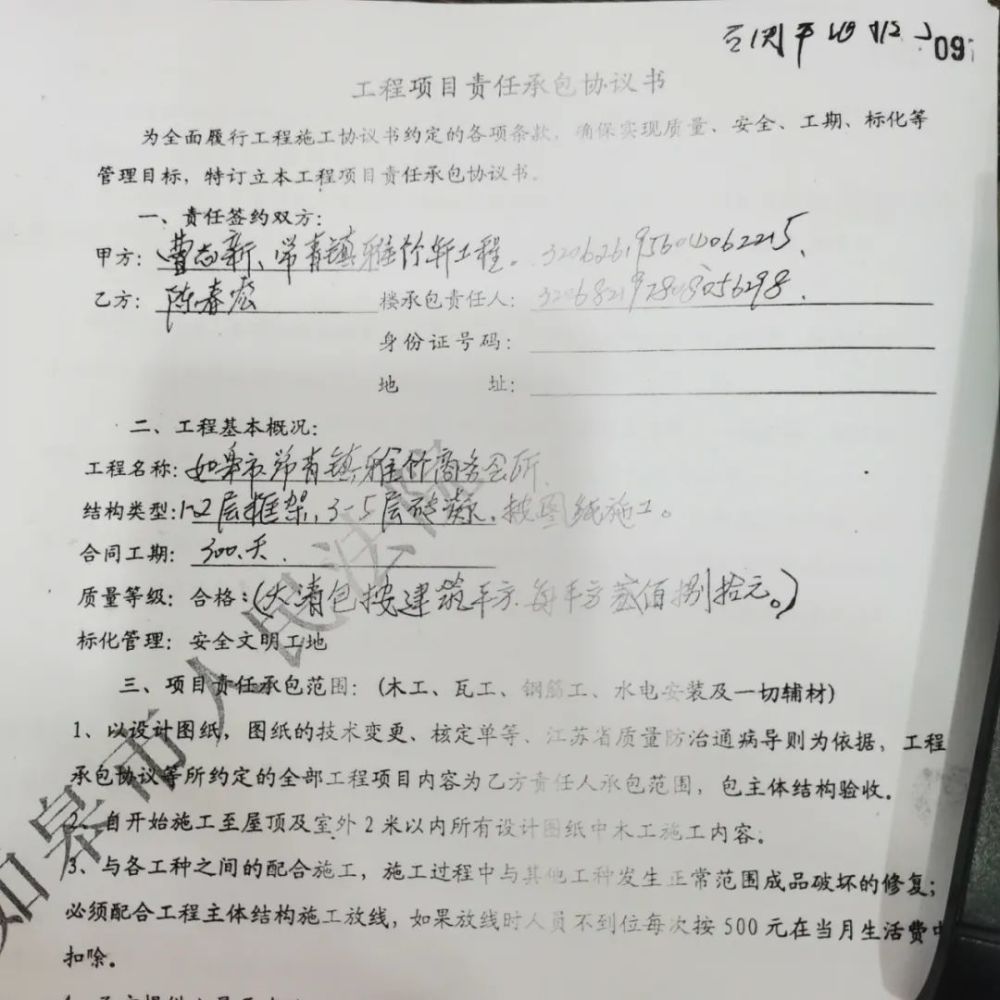 09
工程项目责任承包协议书
为全面履行工程施工协议书约定的各项条款，确保实现质量、安全、工期、标化等
管理目标，特订立本工程项目责任承包协议书。
一、责任签约双方：
甲方：曹志新、常青镇雅竹轩工程。
乙方：陈春宏 楼承包责任人：
身份证号码：
地 址：
二、工程基本概况：
工程名称：如皋市常青镇雅竹商务会所
结构类型：1-2层框架，3-5层砖混，按图纸施工。
合同工期：300天.
质量等级：合格：（大清包按建筑平方.每平方贰佰捌拾元。）
标化管理：安全文明工地
三、项目责任承包范围：（木工、瓦工、钢筋工、水电安装及一切辅材）
1、以设计图纸，图纸的技术变更、核定单等、江苏省质量防治通病导则为依据，工程
承包协议等所约定的全部工程项目内容为乙方责任人承包范围，包主体结构验收。
2、自开始施工至屋顶及室外2米以内所有设计图纸中木工施工内容。
3、与各工种之间的配合施工，施工过程中与其他工种发生正常范围成品破坏的修复；
必须配合工程主体结构施工放线，如果放线时人员不到位每次按500元在当月生活费中
扣除。
如皋市人民法院